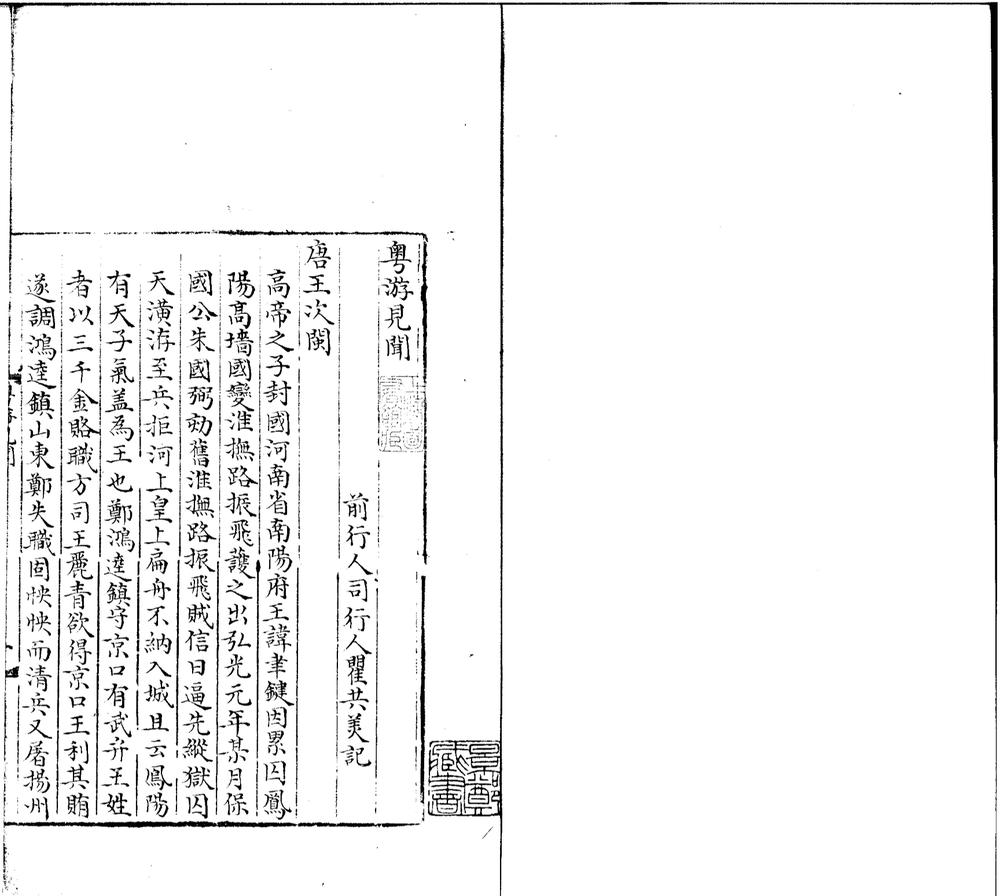 粤游見聞
前行人司行人瞿共美記
唐王次閩
高帝之子封國河南省南陽府王諱聿鍵因累囚鳳
陽高墻國變淮撫路振飛護之出弘光元年某月保
國公朱國弼劾舊淮撫路振飛賊信日逼先縱獄囚
天潢洊至兵拒河上皇上扁舟不納入城且云鳳陽
有天子氣盖為王也鄭鴻逵鎮守京口有武弁王姓
者以三千金賂職方司王麗青欲得京口王利其賄
遂調鴻逵鎮山東鄭失職固怏怏而清兵又屠揚州